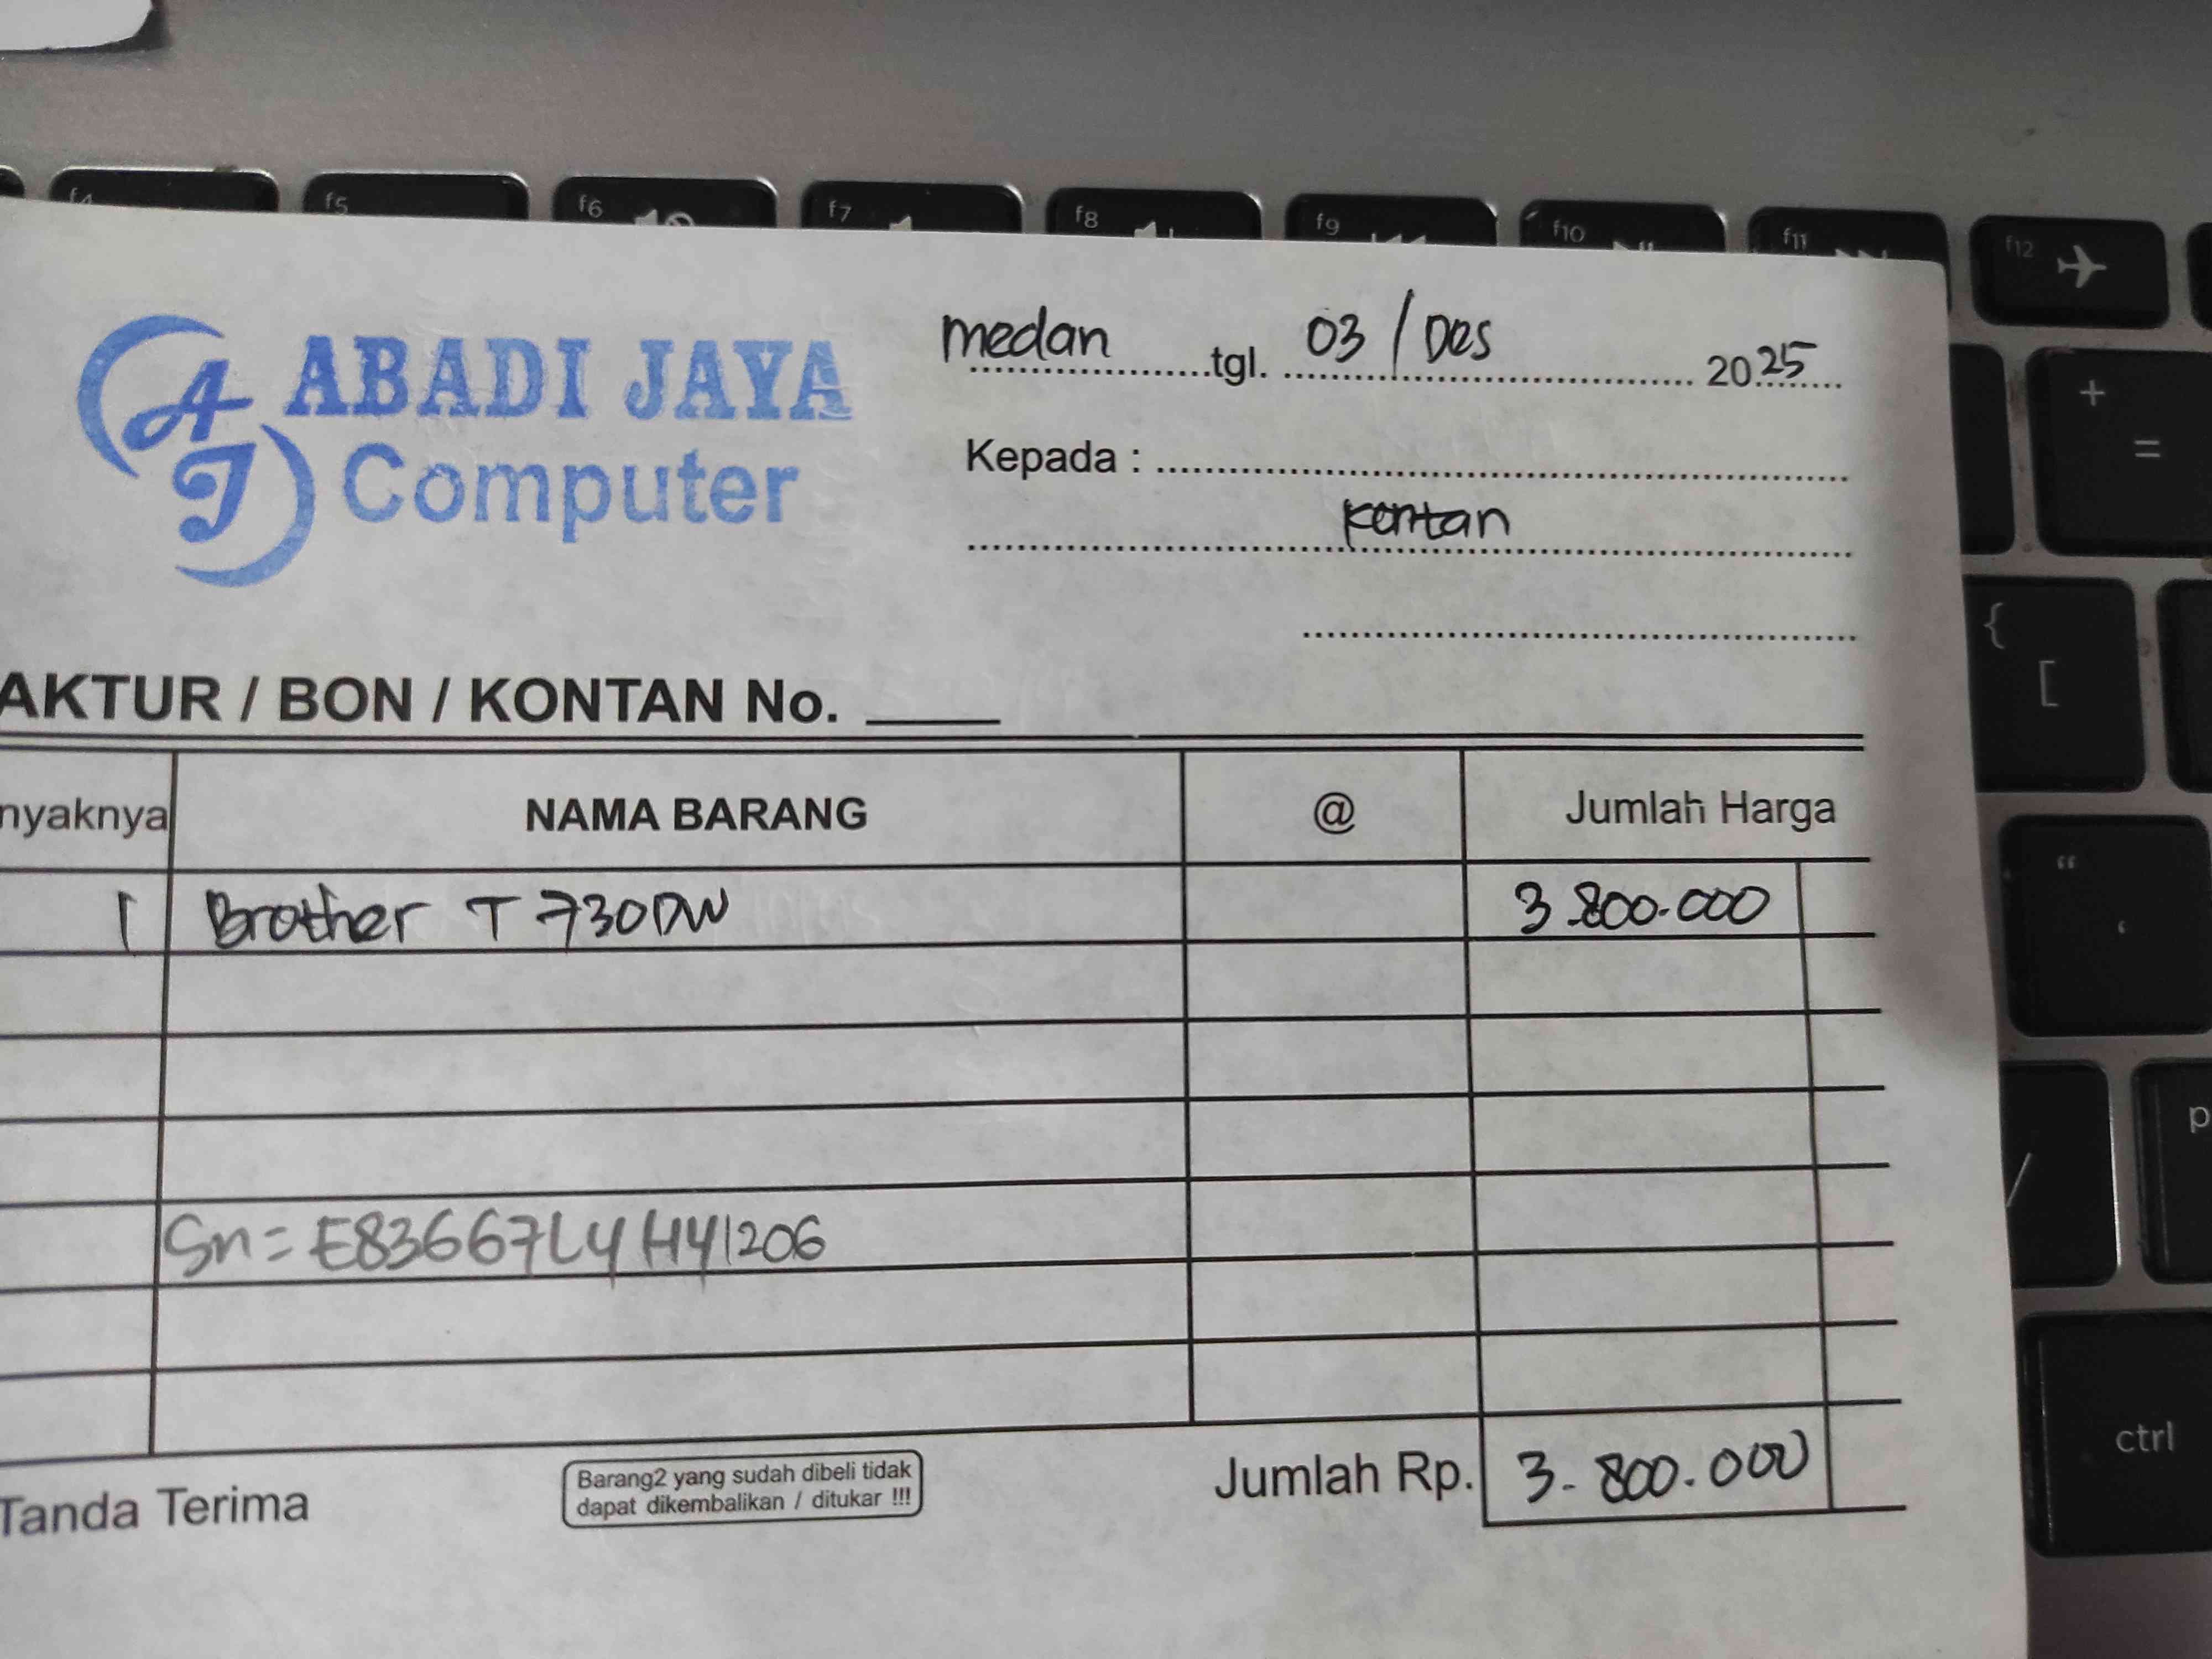 f4 f5 f6 f7 f8 f9 f10 f11 f12
ABADI JAYA
Computer
AJ
medan tgl. 03 / Des 2025
Kepada :
Kontan
AKTUR / BON / KONTAN No.
nyaknya NAMA BARANG @ Jumlah Harga
1 Brother T 730DW 3.800.000
Sn = E83667L4H41206
Tanda Terima
Barang2 yang sudah dibeli tidak
dapat dikembalikan / ditukar !!!
Jumlah Rp. 3.800.000
+
=
{
[
“
‘
/
p
ctrl